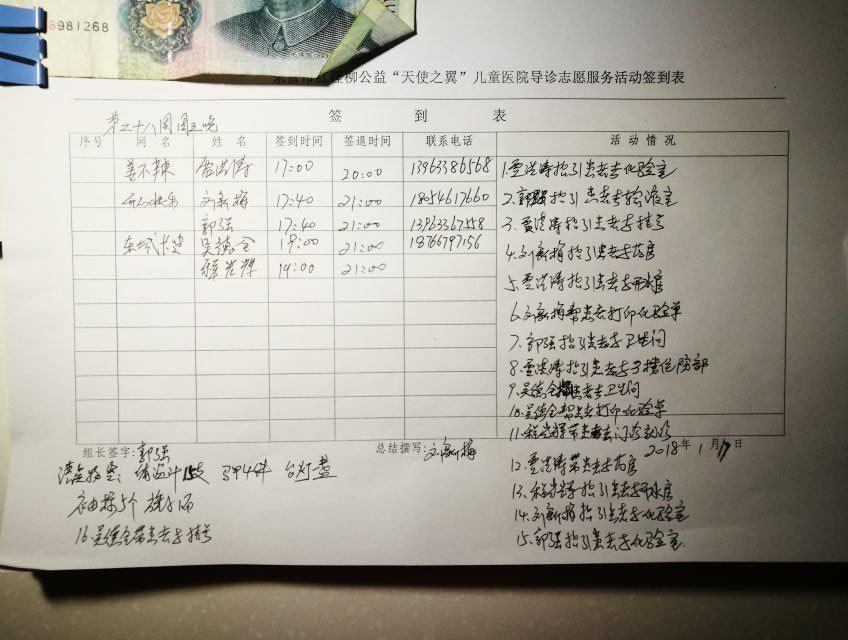 8981268
柳公益“天使之翼”儿童医院导诊志愿服务活动签到表
签 到 表
第三十八周周三晚
序号 网 名 姓 名 签到时间 签退时间 联系电话 活 动 情 况
姜不辣 贾洪涛 17:00 20:00 13963386568
刘新梅 17:40 21:00 18054617660
郭强 17:40 21:00 13963367558
吴德全 19:00 21:00 18766797156
19:00 21:00
1.贾洪涛指引患者去化验室
2.郭强指引患者去输液室
3.贾洪涛指引患者去挂号
4.刘新梅指引患者去药房
5.贾洪涛指引患者去开水房
6.刘新梅帮患者打印化验单
7.郭强指引患者去卫生间
8.贾洪涛指引患者去
9.吴德全指引患者去卫生间
10.吴德全帮患者打印化验单
11.带患者去门诊
组长签字:郭强 总结撰写:刘新梅 2018年1月17日
12.贾洪涛带患者去药房
13.指引患者去开水房
14.刘新梅指引患者去化验室
15.郭强指引患者去化验室
清点物资:
16.吴德全带患者去挂号